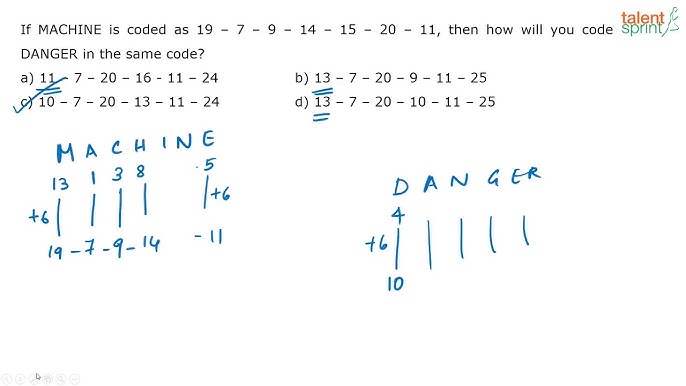 If MACHINE is coded as 19 – 7 – 9 – 14 – 15 – 20 – 11, then how will you code
DANGER in the same code?
talent
sprint
a) 11 – 7 – 20 – 16 - 11 – 24
b) 13 – 7 – 20 – 9 – 11 – 25
c) 10 – 7 – 20 – 13 – 11 – 24
d) 13 – 7 – 20 – 10 – 11 – 25
M A C H I N E
13 1 3 8 5
+6 +6
19 - 7 - 9 - 14 - 11
D A N G E R
4
+6
10